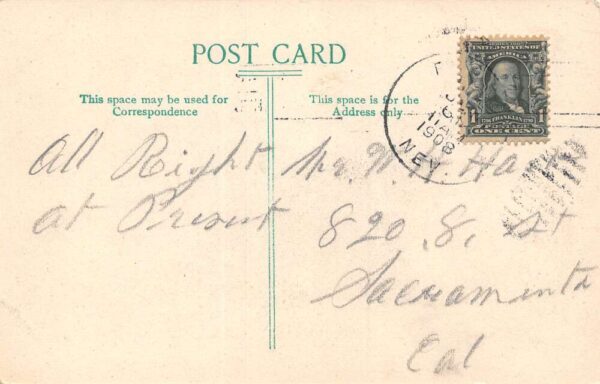 POST CARD
This space may be used for
Correspondence
This space is for the
Address only
UNITED STATES OF
AMERICA
1 1
FRANKLIN
POSTAGE
ONE CENT
1908
NEV.
All Right
at Present
Mr. W. H.
820. 8, st
Sacramento
Cal